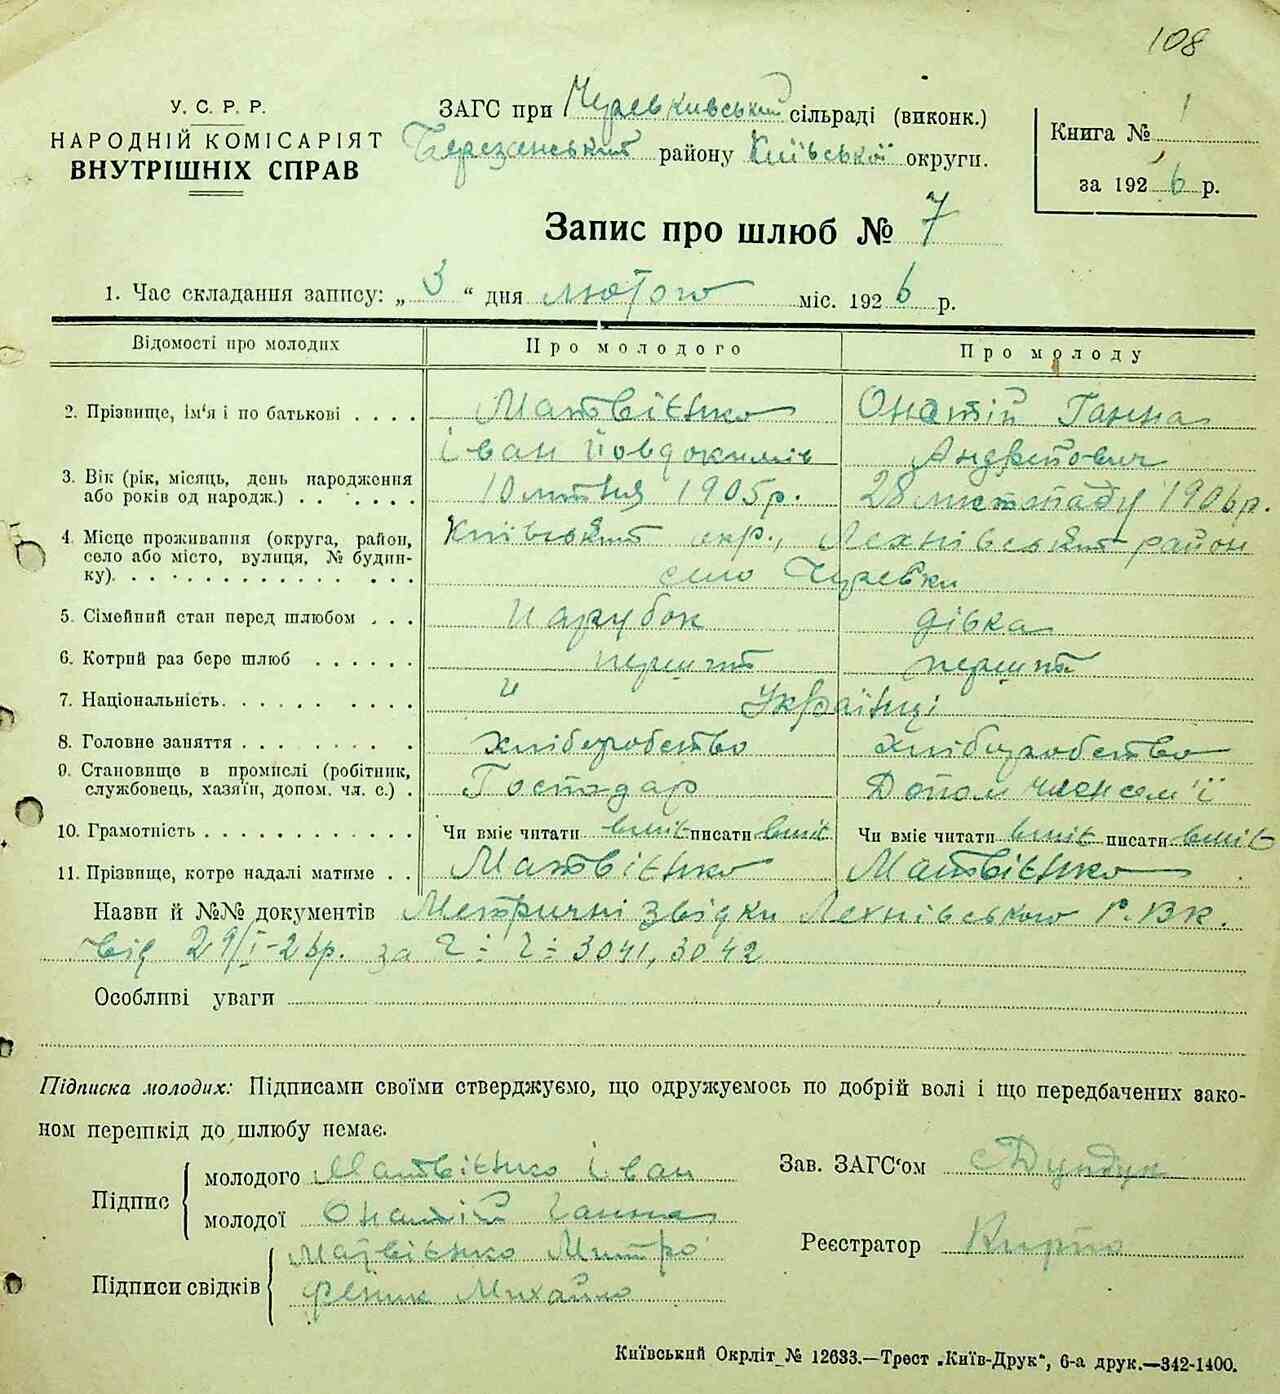 108
У. С. Р. Р.
НАРОДНІЙ КОМІСАРІЯТ
ВНУТРІШНІХ СПРАВ
ЗАГС при Черевківський сільраді (виконк.)
Березанський району Київської округи.
Книга № 1
за 1926 р.
Запис про шлюб № 7
1. Час складання запису: „ 3 “ дня лютого міс. 1926 р.
Відомості про молодих
Про молодого
Про молоду
2. Прізвище, ім‘я і по батькові . . . .
Матвієнко
Іван Йовдокимів
Онатій Ганна
Андрійович
3. Вік (рік, місяць, день народження
або років од народж.) . . . . . . .
10 липня 1905р.
28 листопаду 1906р.
4. Місце проживання (округа, район,
село або місто, вулиця, № будин-
ку). . . . . . . . . . . . . . .
Київський окр., Яхнівський район
село Черевки
5. Сімейний стан перед шлюбом . . .
парубок
дівка
6. Котрий раз бере шлюб . . . . . .
перший
перший
7. Національність. . . . . . . . . .
Українці
8. Головне заняття . . . . . . . . .
хліборобство
хліборобство
9. Становище в промислі (робітник,
службовець, хазяїн, допом. чл. с.) .
Господар
Допом член сем'ї
10. Грамотність . . . . . . . . . . . .
Чи вміє читати вміє писати вміє
Чи вміє читати вміє писати вміє
11. Прізвище, котре надалі матиме . .
Матвієнко
Матвієнко
Назви й №№ документів Метричні звідки Яхнівського Р.ВК.
від 29/I-26р. за 3041, 3042
Особливі уваги
Підписка молодих: Підписами своїми стверджуємо, що одружуємось по добрій волі і що передбачених зако-
ном перешкід до шлюбу немає.
Підпис
молодого Матвієнко Іван
молодої Онатій Ганна
Підписи свідків
Матвієнко Митро
Феник Михайло
Зав. ЗАГС‘ом Дундук
Реєстратор Кирпо
Київський Окрліт № 12633.—Трест „Київ-Друк“, 6-а друк.—342-1400.